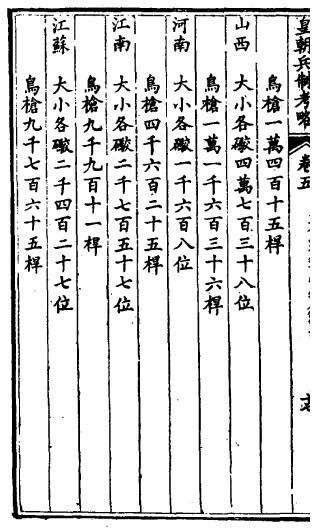 皇朝兵制考略 卷五
鳥槍一萬四百十五桿
山西 大小各礮四萬七百三十八位
鳥槍一萬一千六百三十六桿
河南 大小各礮一千六百八位
鳥槍四千六百二十五桿
江南 大小各礮二千七百五十七位
鳥槍九千九百十一桿
江蘇 大小各礮二千四百二十七位
鳥槍九千七百六十五桿